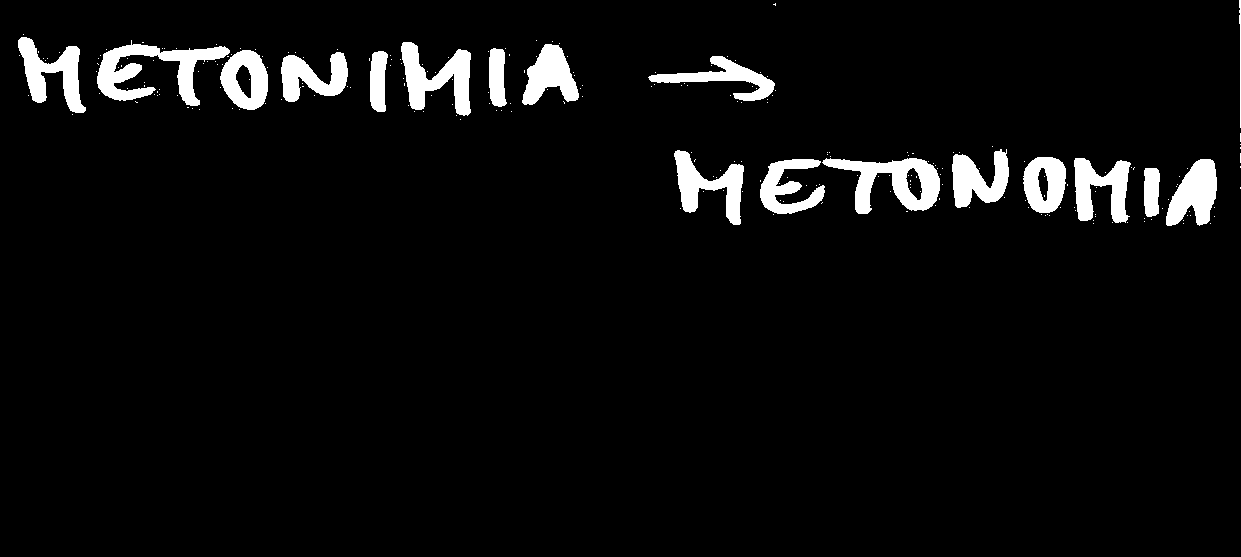 METONIMIA →
METONOMIA